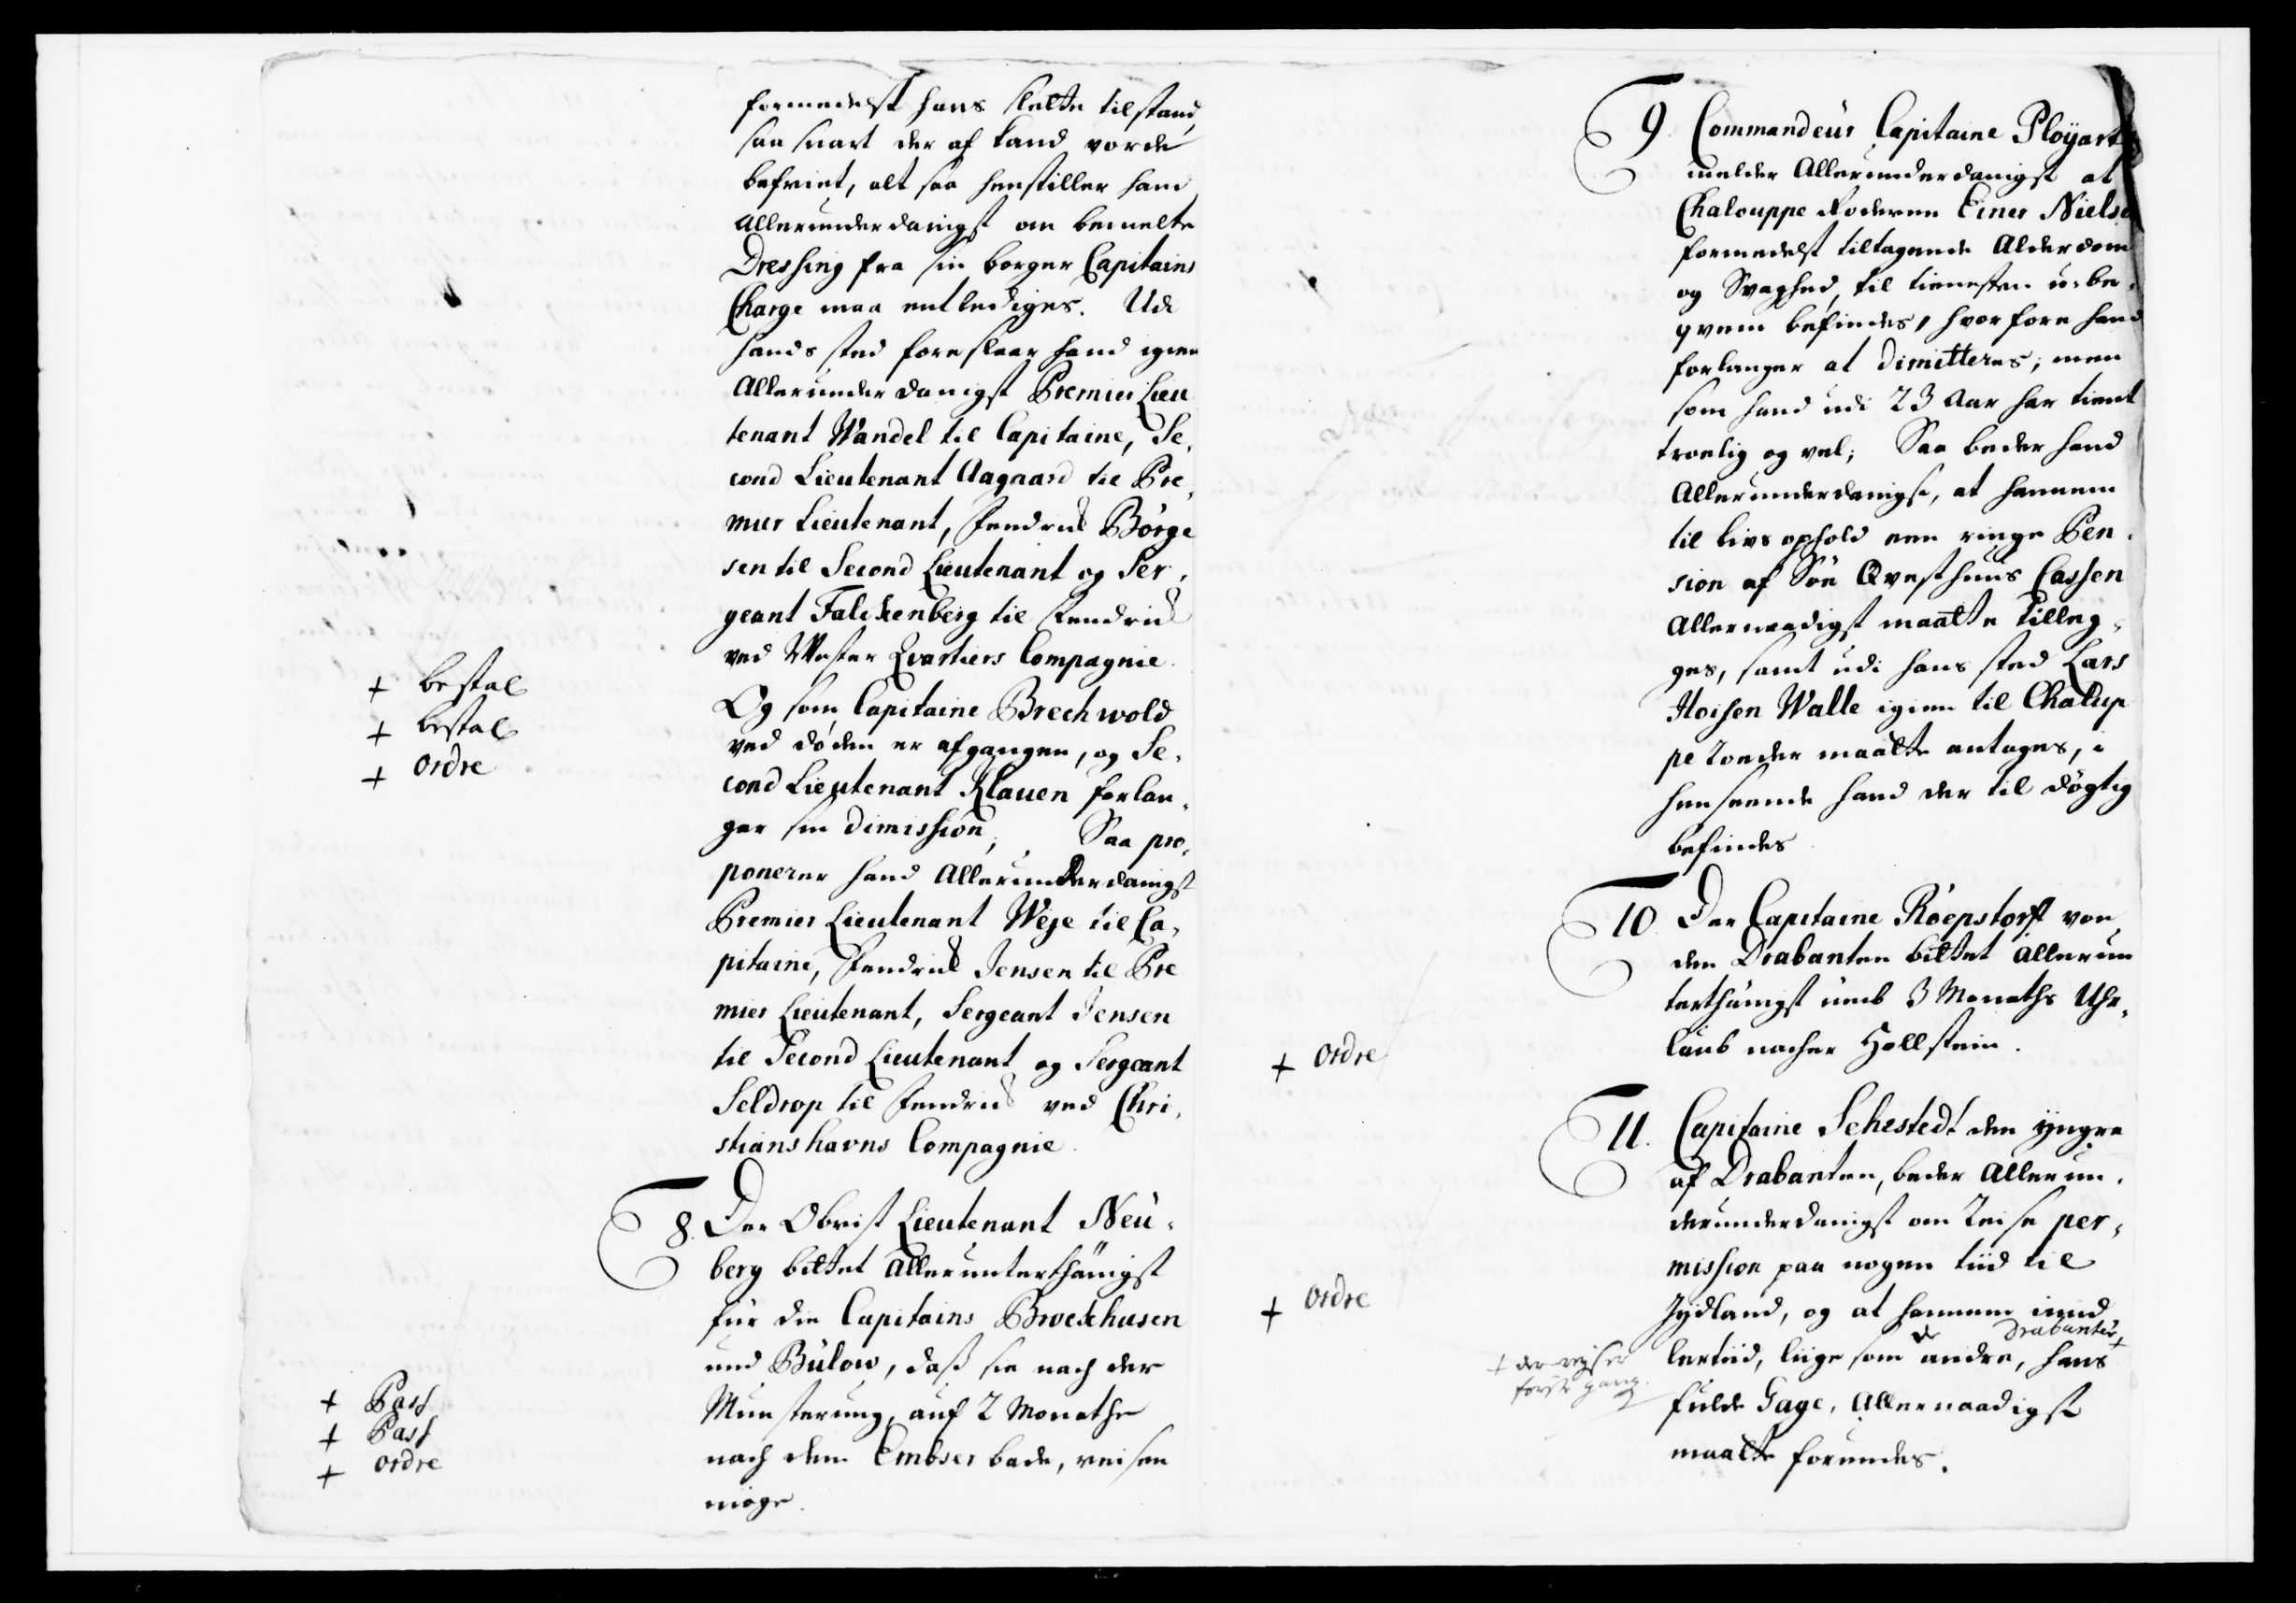 formedelst hans slette tilstand,
saa snart der af kand vorde
befriet, alt saa henstiller hand
allerunderdanigst om bemelte
Dressing fra sin borger Capitains
Charge maa entlediges. Udi
hands sted foreslaar hand igien
Allerunderdanigst Premier Lieu
tenant Wandel til Capitaine, Se,
cond Lieutenant Aagaard til Pre,
mier Lieutenant, Fendrich Börge
sen til Second Lieutenant og Ser,
geant Falckenberg til Fendrich
ved Wester Qvartiers Compagnie.
+ bestal
+ bestal
+ ordre
Og som Capitaine Brechwold
ved döden er afgangen, og Se,
cond Lieutenant Klauen forlan,
ger sin dimission; Saa pro,
ponerer hand Allerunderdanigst
Premier Lieutenant Weje til Ca,
pitaine, Fendrich Jensen til Pre
mier Lieutenant, Sergeant Jensen
til Second Lieutenant og Sergeant
Seldrop til Fendrich ved Chri,
stianshavns Compagnie.
8. Der Obrist Lieutenant Neu,
berg bittet Allerunterthänigst
für die Capitains Brockhusen
und Bülow, daß sie nach der
Munsterung, auf 2 Monathe
nach dem Embser bade, reisen
möge.
+ Pass
+ Pass
+ ordre
9. Commandeur Capitaine Ployart
melder Allerunderdanigst at
Chalouppe Roderen Einer Nielsen
formedelst tiltagende Alderdom
og Svaghed, til tienesten u-be,
qvem befindes, hvorfore hand
forlanger at dimitteres; men
som hand udi 23 Aar har tient
troelig og vel; Saa beder hand
Allerunderdanigst, at hannem
til livs ophold een ringe Pen,
sion af Söe Qvesthuus Cassen
Allernaadigst maatte tilleg,
ges, samt udi hans sted Lars
Walle igien til Chalup
pe Roeder maatte antages, i
henseende hand der til dögtig
befindes
10. Der Capitaine Röepstorff von
den Drabanten bittet Allerun
terthänigst umb 3 Monaths Uhr,
laub nacher Hollstein.
+ ordre
11. Capitaine Sehestedt den yngre
af Drabanten, beder Allerun,
derunderdanigst om Reise per,
mission paa nogen tiid til
Jydland, og at hannem imid
lertiid, liige som de andre Drabanter +, hans
fulde Gage, Allernaadigst
maatte forundes.
+ ordre
+ der rejser
förste gang.